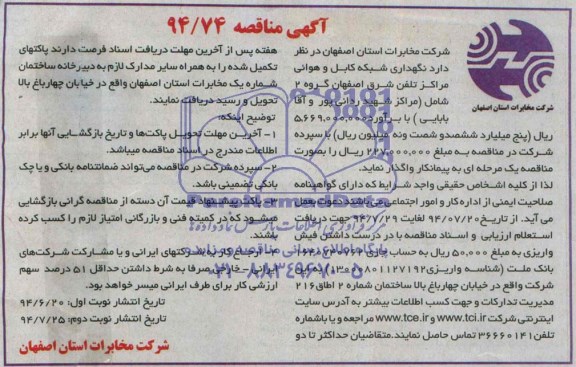 آگهی مناقصه ۹۴/۷۴
شرکت مخابرات استان اصفهان
شرکت مخابرات استان اصفهان در نظر
دارد نگهداری شبکه کابل و هوائی
مراکز تلفن شرق اصفهان گروه ۲
شامل (مراکز شهید ردانی پور و آقا
بابایی) با برآورد ۵.۶۶۹.۰۰۰.۰۰۰
ریال (پنج میلیارد ششصدو شصت ونه میلیون ریال) باسپرده
شرکت در مناقصه به مبلغ ۲۲۷.۰۰۰.۰۰۰ ریال را بصورت
مناقصه یک مرحله ای به پیمانکار واگذار نماید.
لذا از کلیه اشخاص حقیقی واجد شرایط که دارای گواهینامه
صلاحیت ایمنی از اداره کار و امور اجتماعی می باشند دعوت بعمل
می آید. از تاریخ ۹۴/۰۷/۲۰ لغایت ۹۴/۷/۲۹ جهت دریافت
استعلام ارزیابی و اسناد مناقصه با در دست داشتن فیش
واریزی به مبلغ ۵۰.۰۰۰ ریال به حساب جاری
بانک ملت (شناسه واریزی
شرکت واقع در خیابان چهارباغ بالا ساختمان شماره ۲ اطاق ۲۱۶
مدیریت تدارکات و جهت کسب اطلاعات بیشتر به آدرس سایت
اینترنتی شرکت www.tci.ir و www.tce.ir مراجعه و یا باشماره
تلفن ۳۶۶۶۰۱۴۱ تماس حاصل نمایند. متقاضیان حداکثر تا دو
هفته پس از آخرین مهلت دریافت اسناد فرصت دارند پاکتهای
تکمیل شده را به همراه سایر مدارک لازم به دبیرخانه ساختمان
شماره یک مخابرات استان اصفهان واقع در خیابان چهارباغ بالا
تحویل و رسید دریافت نمایند.
توضیح اینکه:
۱- آخرین مهلت تحویل پاکت ها و تاریخ بازگشایی آنها برابر
اطلاعات مندرج در اسناد مناقصه میباشد.
۲- سپرده شرکت در مناقصه می تواند ضمانتنامه بانکی و یا چک
بانکی تضمینی باشد.
۳- پاکت پیشنهاد قیمت آن دسته از مناقصه گرانی بازگشایی
میشود که در کمیته فنی و بازرگانی امتیاز لازم را کسب کرده
باشند.
۴- ارجاع کار به شرکتهای ایرانی و یا مشارکت شرکت های
ایرانی - خارجی صرفا به شرط داشتن حداقل ۵۱ درصد سهم
ارزشی کار برای طرف ایرانی میسر خواهد بود.
تاریخ انتشار نوبت اول: ۹۴/۶/۲۰
تاریخ انتشار نوبت دوم: ۹۴/۷/۲۵
شرکت مخابرات استان اصفهان
ParsNamadData
پایگاه اطلاع رسانی مناقصه و مزایده
۰۲۱-۸۸۳۴۹۶۷۰-۵